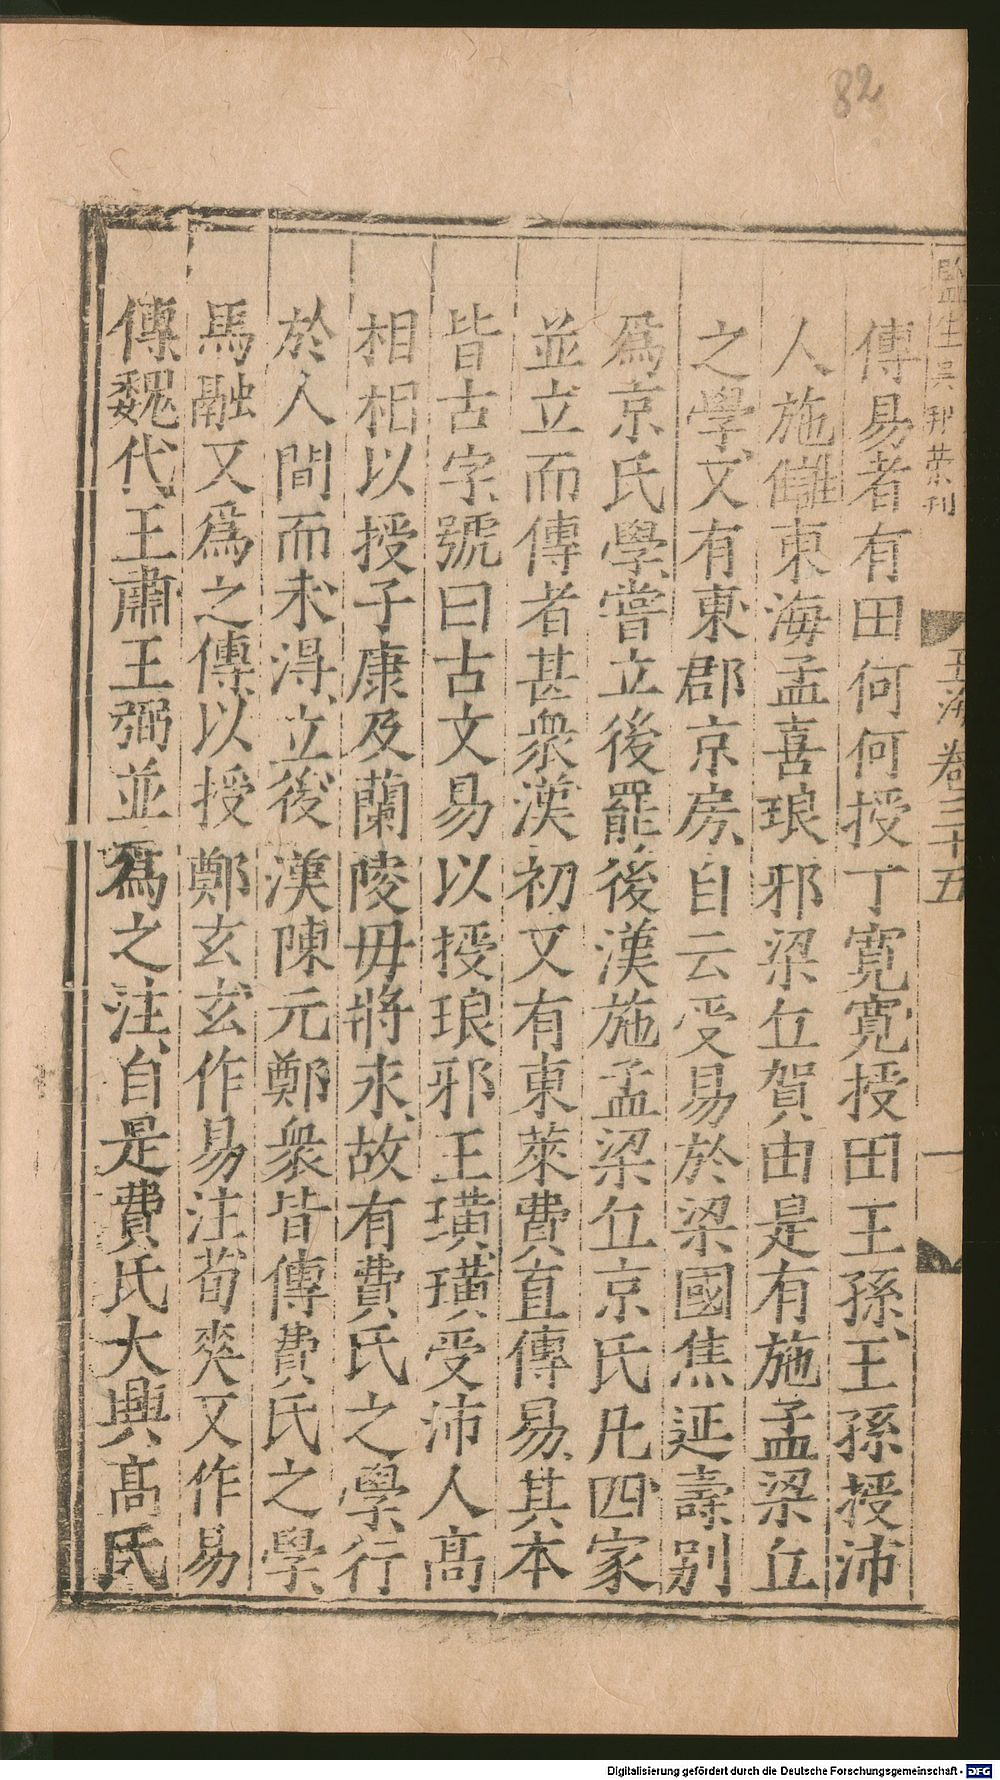 82
監生吳邦榮刊
玉海卷三十五
一
傳易者有田何何授丁寬寬授田王孫王孫授沛
人施讎東海孟喜琅邪梁丘賀由是有施孟梁丘
之學又有東郡京房自云受易於梁國焦延壽別
爲京氏學嘗立後罷後漢施孟梁丘京氏凡四家
並立而傳者甚衆漢初又有東萊費直傳易其本
皆古字號曰古文易以授琅邪王璜璜受沛人高
相相以授子康及蘭陵毋將永故有費氏之學行
於人間而未得立後漢陳元鄭衆皆傳費氏之學
馬融又爲之傳以授鄭玄玄作易注荀爽又作易
傳魏代王肅王弼並爲之注自是費氏大興高氏
Digitalisierung gefördert durch die Deutsche Forschungsgemeinschaft - DFG